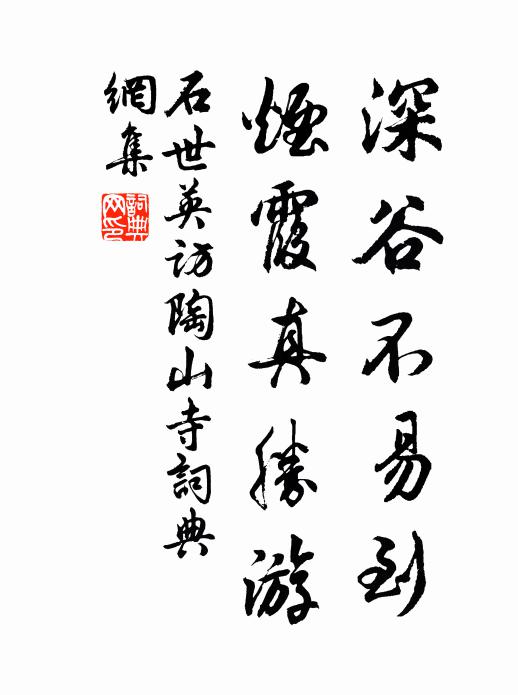 深谷不易到
煙霞真勝游
石世英訪陶山寺詞典
網集
詞典网印